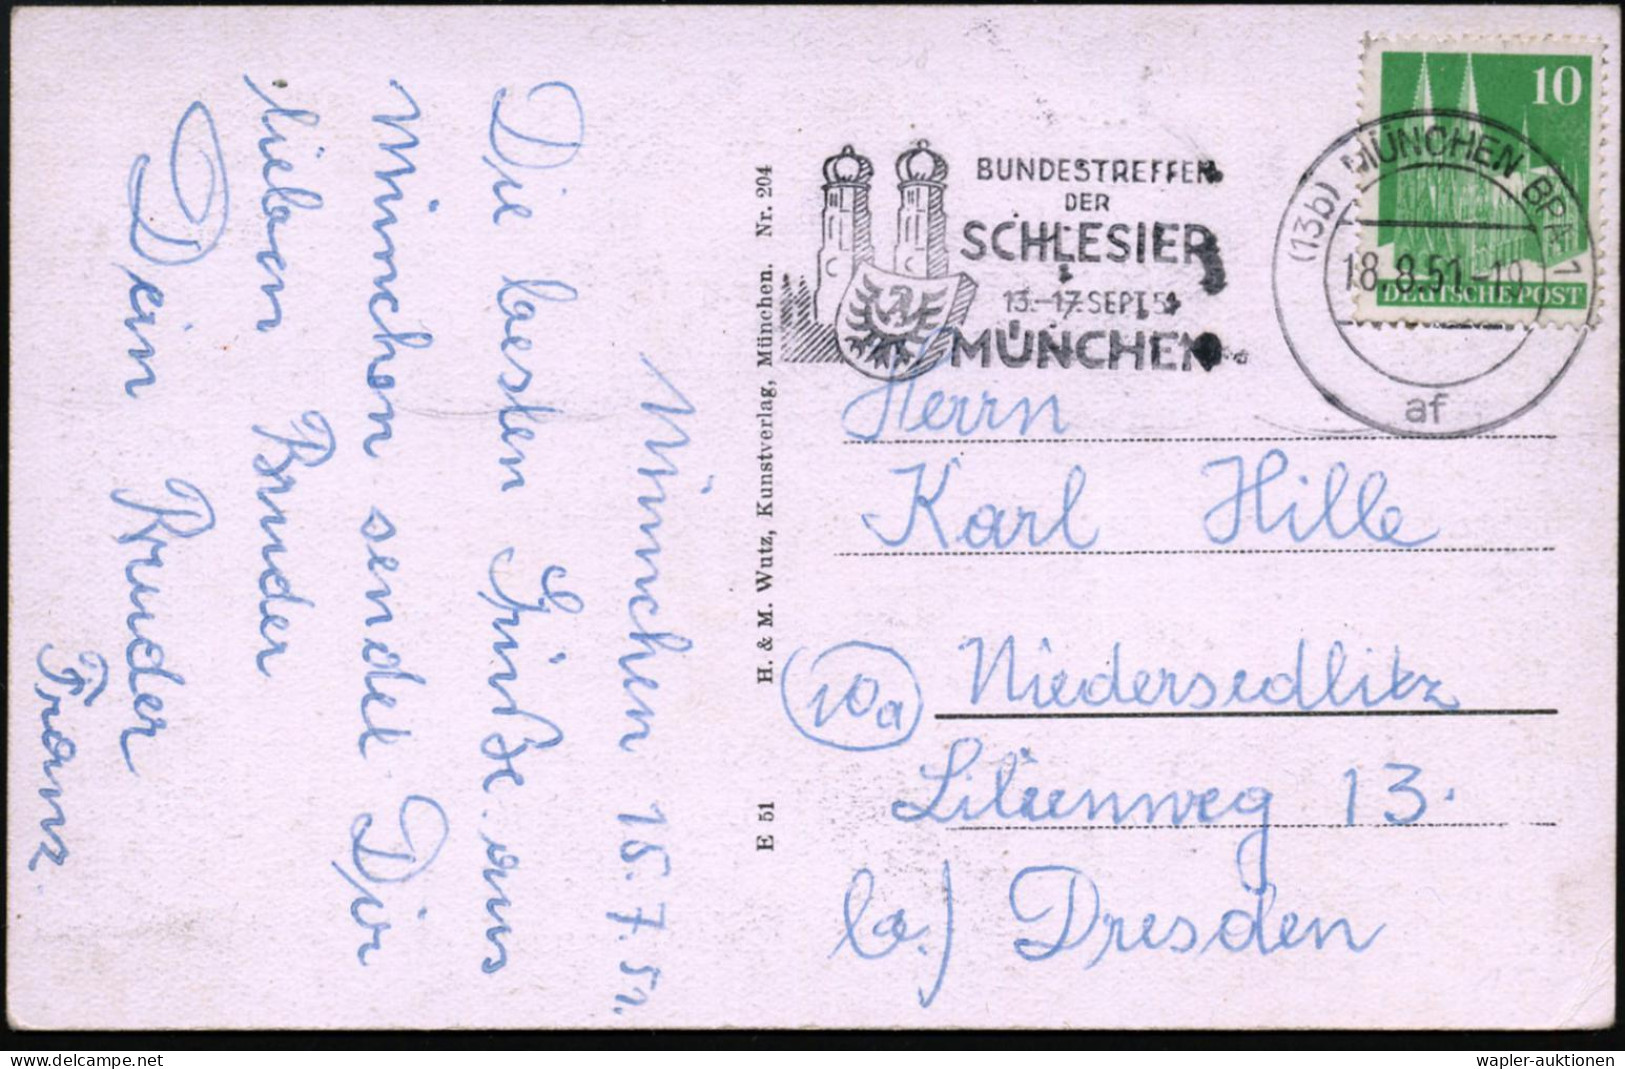 München 15.7.51.
Die besten Grüße aus
München sendet Dir
lieber Bruder
Dein Bruder
Franz.
H. & M. Wutz, Kunstverlag, München. Nr. 204
E 51
BUNDESTREFFEN
DER
SCHLESIER
13.-17. SEPT. 51
MÜNCHEN
(13b) MÜNCHEN BPA 1
18.8.51.-19
af
10
DEUTSCHE POST
Herrn
Karl Hille
10a Niedersedlitz
Lilienweg 13.
b.) Dresden
delcampe.net
wapler-auktionen